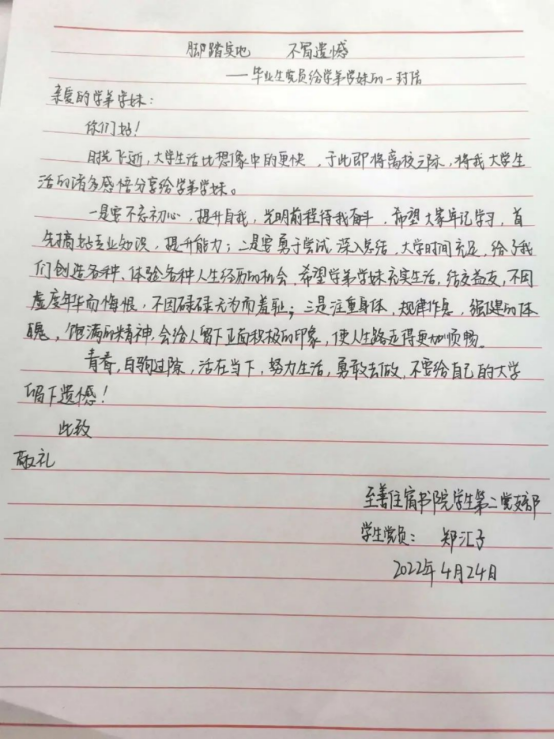 脚踏实地 不留遗憾
——毕业生党员给学弟学妹的一封信
亲爱的学弟学妹：
你们好！
时光飞逝，大学生活比想像中的更快，于此即将离校之际，将我大学生
活的诸多感悟分享给学弟学妹。
一是要不忘初心，提升自我，光明前程待我奋斗，希望大家牢记学习，首
先搞好专业知识，提升能力；二是要勇于尝试，深入总结，大学时间充足，给了我
们创造各种、体验各种人生经历的机会，希望学弟学妹充实生活，结交益友，不因
虚度年华而悔恨，不因碌碌无为而羞耻；三是注重身体，规律作息，强健的体
魄，饱满的精神，会给人留下正面积极的印象，使人生路走得更加顺畅。
青春，白驹过隙，活在当下，努力生活，勇敢去做，不要给自己的大学
留下遗憾！
此致
敬礼
至善住宿书院学生第二党支部
学生党员：郑汇子
2022年4月24日